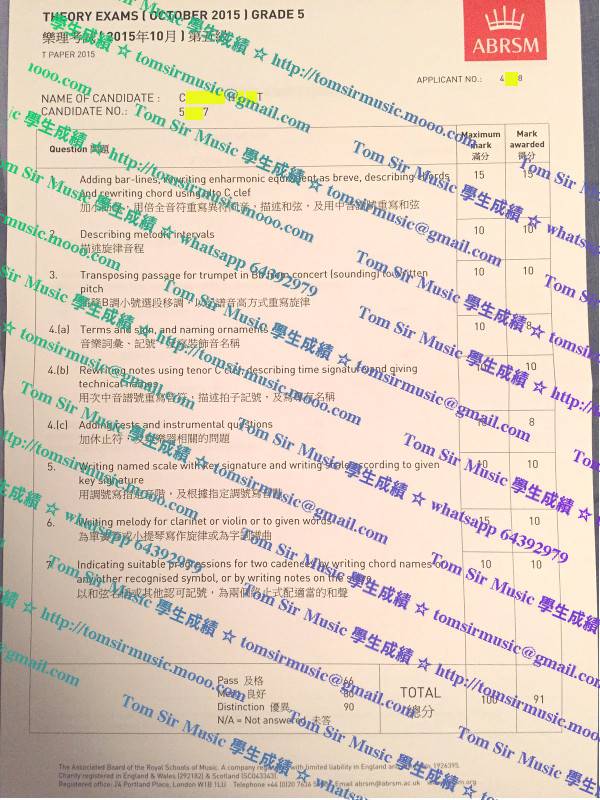 THEORY EXAMS ( OCTOBER 2015 ) GRADE 5
樂理考試 ( 2015年10月 ) 第五級
T PAPER 2015
ABRSM
APPLICANT NO.: 4 8
NAME OF CANDIDATE : C H T
CANDIDATE NO.: 5 7
Question 問題
Maximum mark 滿分
Mark awarded 得分
Adding bar-lines, rewriting enharmonic equivalent as breve, describing chords
and rewriting chord using alto C clef
15 15
2. Describing melodic intervals
描述旋律音程
10 10
3. Transposing passage for trumpet in Bb from concert (sounding) to written
pitch
10 10
4.(a) Terms and sign, and naming ornaments
音樂詞彙、記號 裝飾音名稱
10 8
4.(b) Rewriting notes using tenor C clef, describing time signature and giving
technical names
用次中音譜號重寫音符，描述拍子記號，及寫 名稱
10 10
4.(c) Adding rests and instrumental questions
加休止符，及 樂器相關的問題
10 8
5. Writing named scale with key signature and writing scale according to given
key signature
用調號寫指定音階，及根據指定調號寫音階
10 10
6. Writing melody for clarinet or violin or to given words
為單簧管或小提琴寫作旋律或為字詞譜曲
15 10
7. Indicating suitable progressions for two cadences by writing chord names or
any other recognised symbol, or by writing notes on the stave
以和弦名稱或其他認可記號，為兩個終止式配適當的和聲
10 10
Pass 及格 66
Merit 良好 80
Distinction 優異 90
N/A = Not answered 未答
TOTAL
總分
100 91
The Associated Board of the Royal Schools of Music. A company registered with limited liability in England and Wales 1926395.
Charity registered in England & Wales (292182) & Scotland (SC043343).
Registered office: 24 Portland Place, London W1B 1LU Telephone +44 (0)20 7636 Email abrsm@abrsm.ac.uk
Tom Sir Music 學生成績 ☆ http://tomsirmusic.mooo.com
Tom Sir Music 學生成績 ☆ tomsirmusic@gmail.com
Tom Sir Music 學生成績 ☆ whatsapp 64392979